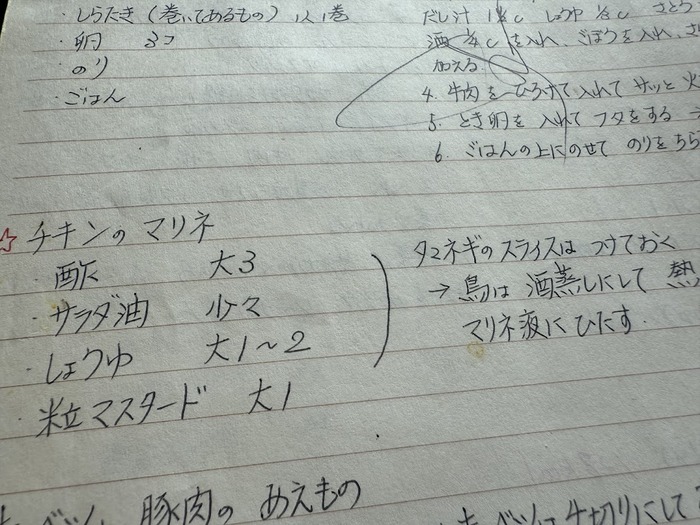 ・しらたき(巻いてあるもの) 1巻
・卵 3コ
・のり
・ごはん
だし汁 しょうゆ さとう
酒 を入れ、ごぼうを入れ、
加える
4. 牛肉をひろげて入れて サッと 火
5. とき卵を 入れて フタをする
6. ごはんの上にのせて のりをちら
☆ チキンの マリネ
・酢 大3
・サラダ油 少々
・しょうゆ 大1〜2
・粒マスタード 大1
タマネギの スライスは つけておく
→ 鳥は 酒蒸しにして 熱
マリネ液に ひたす.
豚肉の あえもの